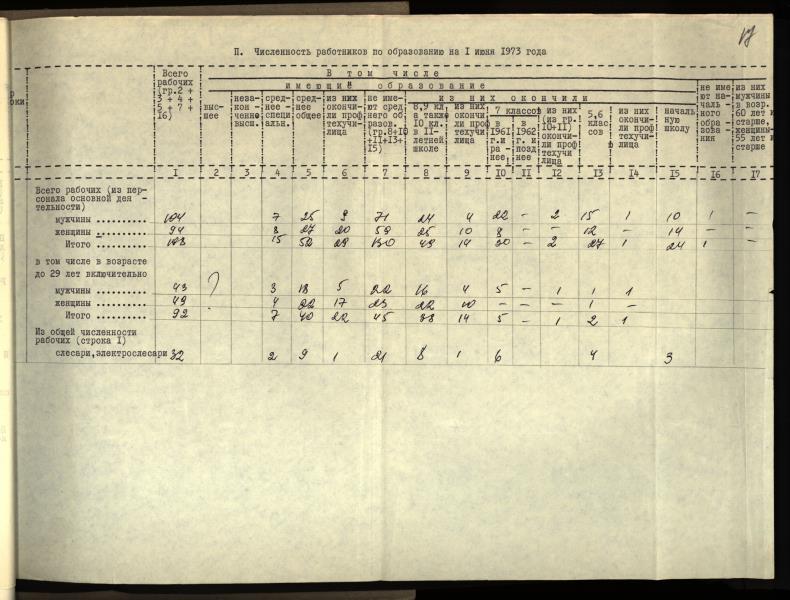 17
П. Численность работников по образованию на I июня 1973 года
Всего рабочих (гр.2 + 3 + 4 + 5 + 7 + 16)
В том числе
имеющие образование
из них окончили
высшее
незакон-ченное высш.
сред-нее специ-альн.
сред-нее общее
из них окончи-ли проф техучи-лища
не име-ют сред-него об-разов. (гр.8+10 +11+13+ 15)
8,9 кл. а также 10 кл. в II-летней школе
из них окончи-ли проф техучи-лища
7 классов
в 1961 г.и ра-нее
в 1962 г. и позд-нее
из них (из гр. 10+11) окончи-ли проф техучи лища
5,6 клас-сов
из них окончи-ли проф техучи-лища
началь-ную школу
не име-ют на-чаль-ного обра-зова-ния
из них мужчины в возр. 60 лет и старше, женщины 55 лет и старше
I 2 3 4 5 6 7 8 9 10 11 12 13 14 15 16 17
Всего рабочих (из пер-
сонала основной дея -
тельности)
мужчины .......... 104 7 25 9 71 24 4 22 – 2 15 1 10 1 –
женщины .......... 94 8 27 20 59 25 10 8 – – 12 – 14 – –
Итого .......... 198 15 52 29 130 49 14 30 – 2 27 1 24 1 –
в том числе в возрасте
до 29 лет включительно
мужчины .......... 43 ? 3 18 5 22 16 4 5 – 1 1 1
женщины .......... 49 4 22 17 23 22 10 – – – 1 –
Итого .......... 92 7 40 22 45 38 14 5 – 1 2 1
Из общей численности
рабочих (строка I)
слесари,электрослесари 32 2 9 1 21 8 1 6 4 3